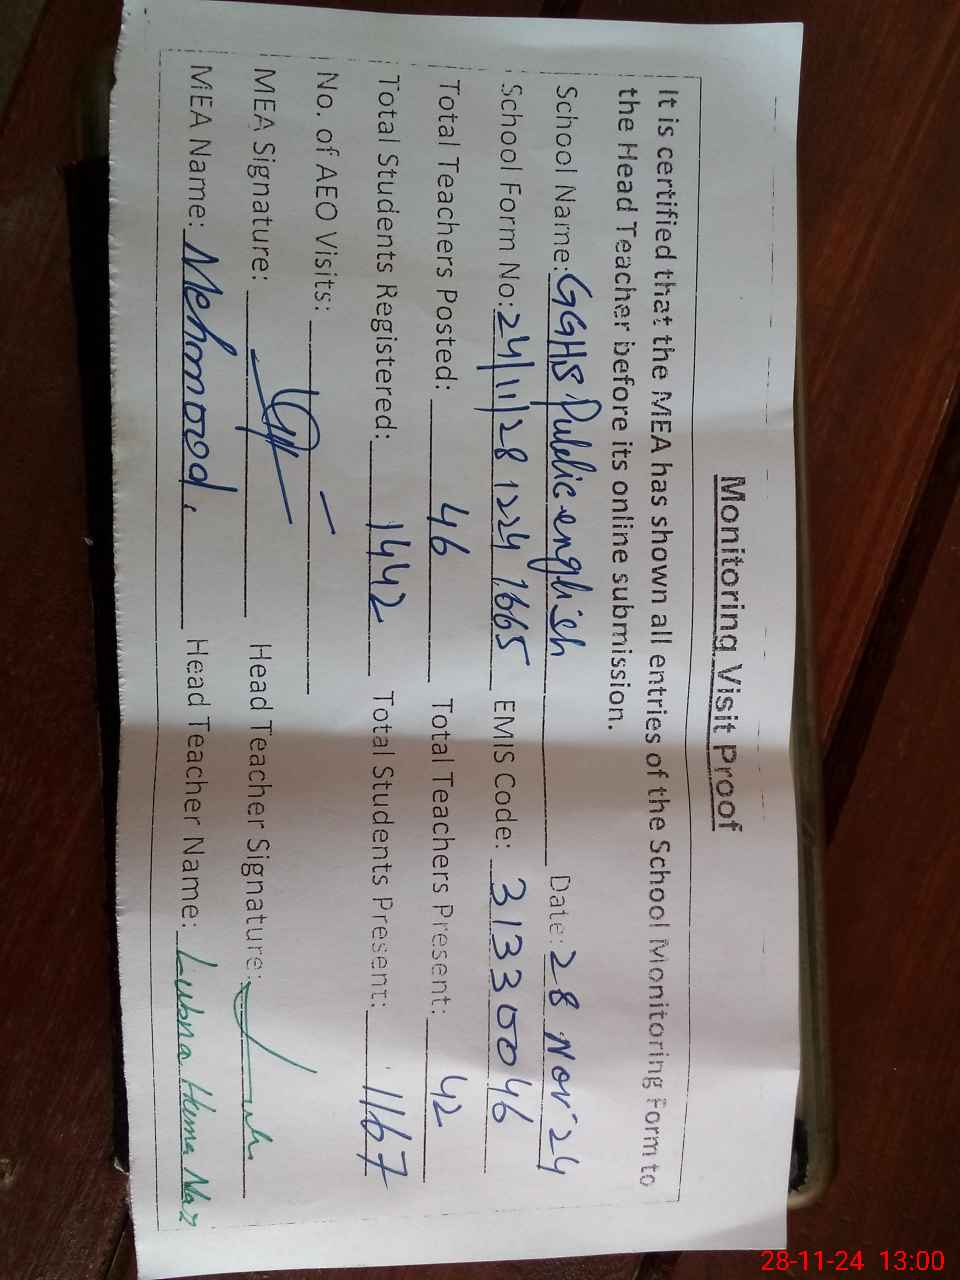 Monitoring Visit Proof
It is certified that the MEA has shown all entries of the School Monitoring Form to
the Head Teacher before its online submission.
School Name: GGHS Public english Date: 28 Nov 24
School Form No: 24/11/28 1224 7665 EMIS Code: 31330046
Total Teachers Posted: 46 Total Teachers Present: 42
Total Students Registered: 1442 Total Students Present: 1167
No. of AEO Visits: —
MEA Signature: Head Teacher Signature:
MEA Name: Mehmood. Head Teacher Name: Lubna Huma Naz
28-11-24 13:00